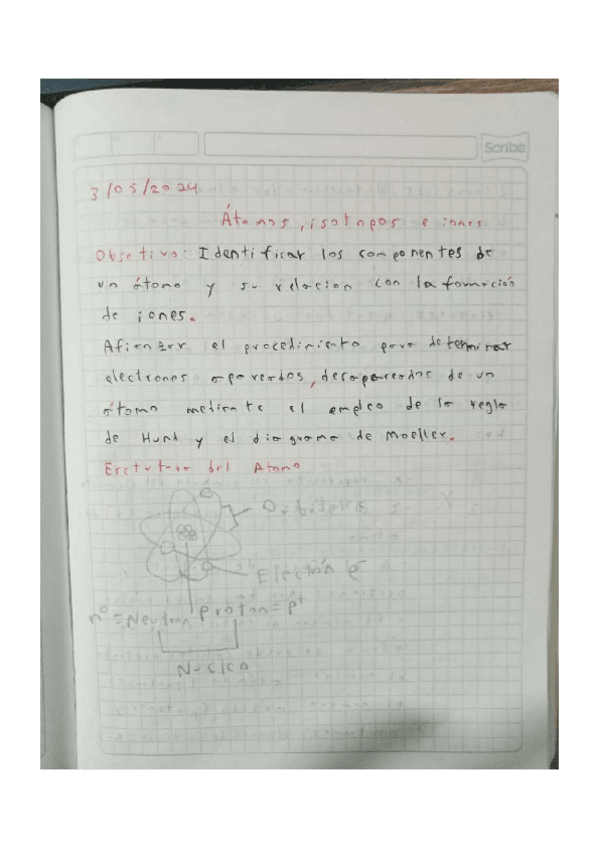 Scribe
3/05/2024
Átomos, isotopos e iones
Objetivo: Identificar los componentes de
un átomo y su relacion con la formación
de iones.
Afianzar el procedimiento para determinar
electrones apareados, desapareados de un
átomo mediante el empleo de la regla
de Hund y el diagrama de Moeller.
Esctutura del Atomo
Orbitales
Electrón e-
n° = Neutron Proton = p+
Nucleo